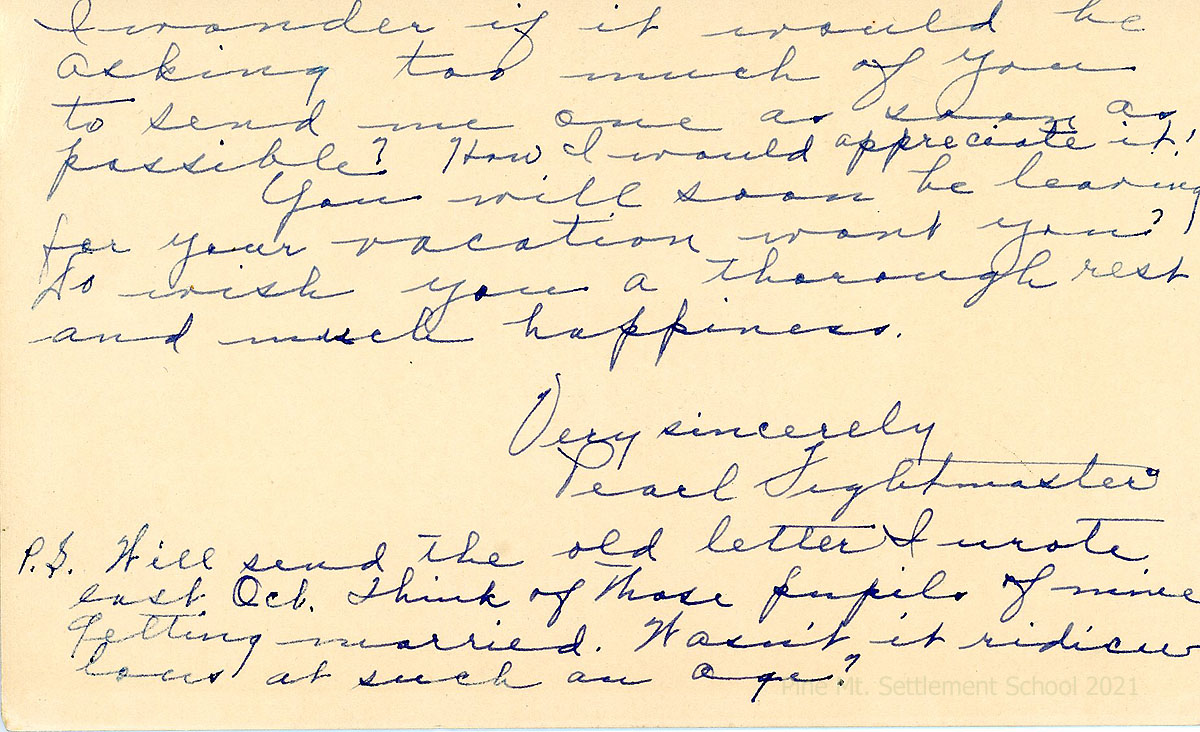 I wonder if it would be
asking too much of you
to send me one as soon as
possible? How I would appreciate it!
You will soon be leaving
for your vacation wont you?
Do wish you a thorough rest
and much happiness.
Very sincerely
Pearl Fightmaster
P.S. Will send the old letter I wrote
last Oct. Think of those pupils of mine
getting married. Wasn't it ridicu-
lous at such an age?
Pine Mt. Settlement School 2021